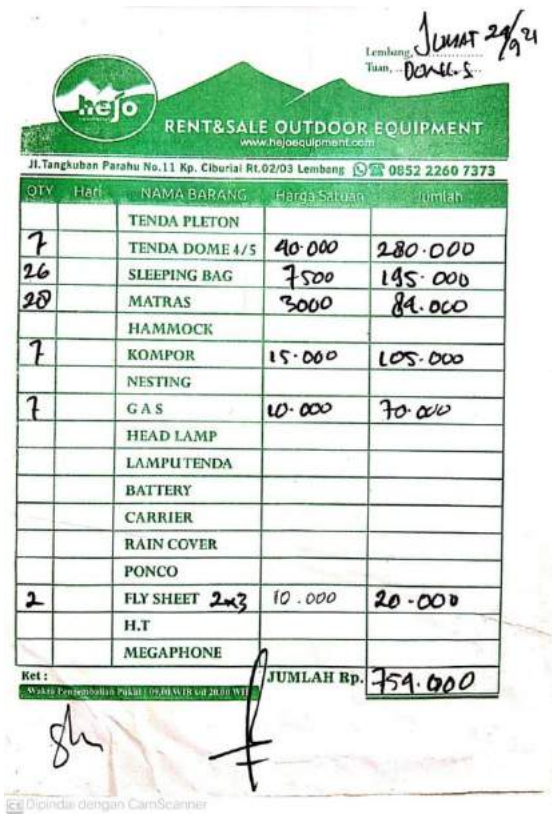 Lembang, JUMAT 24/9 21
Tuan, ..
hejo
RENT&SALE OUTDOOR EQUIPMENT
www.hejoequipment.com
Jl.Tangkuban Parahu No.11 Kp. Ciburial Rt.02/03 Lembang 0852 2260 7373
QTY Hari NAMA BARANG Harga Satuan Jumlah
TENDA PLETON
7 TENDA DOME 4/5 40.000 280.000
26 SLEEPING BAG 7500 195.000
28 MATRAS 3000 84.000
HAMMOCK
7 KOMPOR 15.000 105.000
NESTING
7 GAS 10.000 70.000
HEAD LAMP
LAMPU TENDA
BATTERY
CARRIER
RAIN COVER
PONCO
2 FLY SHEET 2x3 10.000 20.000
H.T
MEGAPHONE
Ket : JUMLAH Rp. 754.000
Waktu Pengembalian Pukul : 09.00 WIB s/d 20.00 WIB
CS Dipindai dengan CamScanner